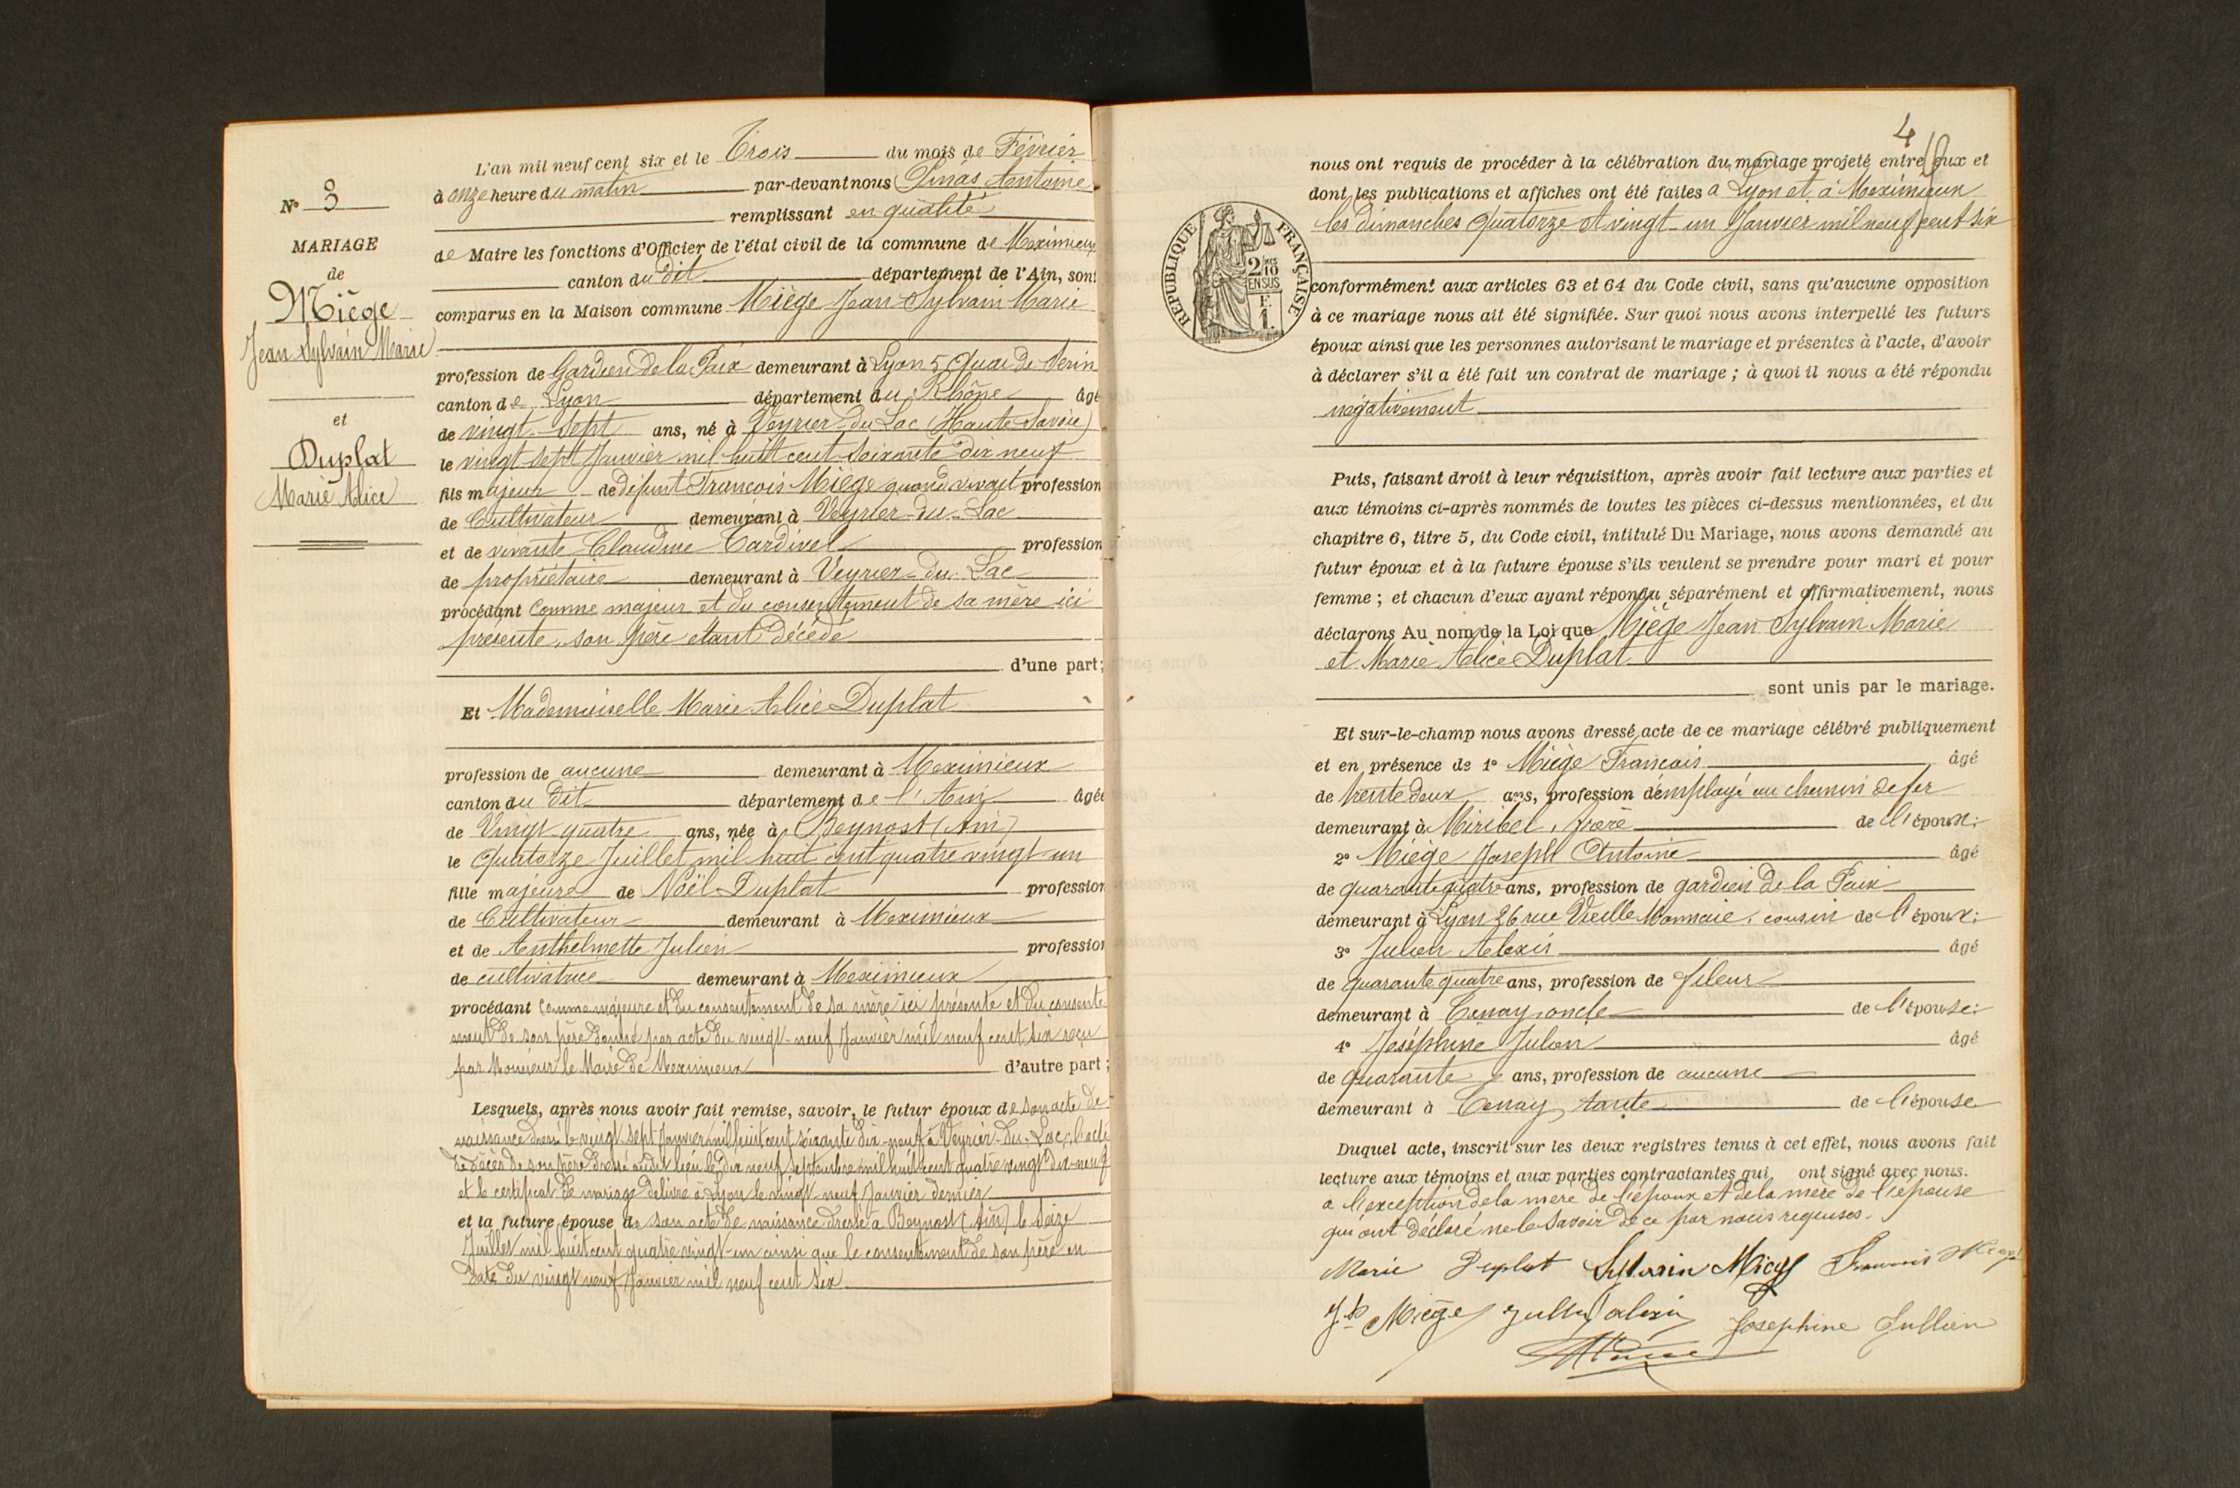 N° 3
MARIAGE
de
Miège
Jean Sylvain Marie
et
Duplat
Marie Alice
L'an mil neuf cent six et le Trois du mois de Février
à onze heure du matin par-devant nous Antoine
remplissant en qualité
de Maire les fonctions d'Officier de l'état civil de la commune de Meximieux
canton du dit département de l'Ain, sont
comparus en la Maison commune Miège Jean Sylvain Marie
profession de Gardien de la Paix demeurant à Lyon 5 Quai de Serin
canton de Lyon département du Rhône âgé
de vingt-sept ans, né à Veyrier-du-Lac (Haute-Savoie)
le vingt sept Janvier mil huit cent soixante dix neuf
fils majeur de défunt François Miège quand vivait profession
de Cultivateur demeurant à Veyrier-du-Lac
et de vivante Claudine Cardinel profession
de propriétaire demeurant à Veyrier-du-Lac
procédant comme majeur et du consentement de sa mère ici
présente, son père étant décédé
d'une part;
Et Mademoiselle Marie Alice Duplat
profession de aucune demeurant à Meximieux
canton du dit département de l'Ain âgée
de Vingt quatre ans, née à Beynost (Ain)
le Quatorze Juillet mil huit cent quatre vingt un
fille majeure de Noël Duplat profession
de Cultivateur demeurant à Meximieux
et de Anthelmette Julien profession
de cultivatrice demeurant à Meximieux
procédant comme majeure et du consentement de sa mère ici présente et du consente
ment de son père donné par acte du vingt-neuf Janvier mil neuf cent six reçu
par Monsieur le Maire de Meximieux d'autre part;
Lesquels, après nous avoir fait remise, savoir, le futur époux de son acte de
naissance dressé le vingt sept Janvier mil huit cent soixante dix-neuf à Veyrier-du-Lac, l'acte
de décès de son père dressé au dit lieu le dix neuf Septembre mil huit cent quatre vingt dix-neuf
et le certificat de mariage délivré à Lyon le vingt-neuf Janvier dernier
et la future épouse de son acte de naissance dressé à Beynost (Ain) le seize
Juillet mil huit cent quatre vingt-un ainsi que le consentement de son père en
date du vingt neuf Janvier mil neuf cent six
4
nous ont requis de procéder à la célébration du mariage projeté entre eux et
dont les publications et affiches ont été faites à Lyon et à Meximieux
les dimanches Quatorze et vingt-un Janvier mil neuf cent six
RÉPUBLIQUE FRANÇAISE
2/10 EN SUS
F.
1.
conformément aux articles 63 et 64 du Code civil, sans qu'aucune opposition
à ce mariage nous ait été signifiée. Sur quoi nous avons interpellé les futurs
époux ainsi que les personnes autorisant le mariage et présentes à l'acte, d'avoir
à déclarer s'il a été fait un contrat de mariage; à quoi il nous a été répondu
négativement
Puis, faisant droit à leur réquisition, après avoir fait lecture aux parties et
aux témoins ci-après nommés de toutes les pièces ci-dessus mentionnées, et du
chapitre 6, titre 5, du Code civil, intitulé Du Mariage, nous avons demandé au
futur époux et à la future épouse s'ils veulent se prendre pour mari et pour
femme; et chacun d'eux ayant répondu séparément et affirmativement, nous
déclarons Au nom de la Loi que Miège Jean Sylvain Marie
et Marie Alice Duplat
sont unis par le mariage.
Et sur-le-champ nous avons dressé acte de ce mariage célébré publiquement
et en présence de 1° Miège François âgé
de trente deux ans, profession d'employé au chemin de fer
demeurant à Miribel, frère de l'époux;
2° Miège Joseph Antoine âgé
de quarante quatre ans, profession de gardien de la Paix
demeurant à Lyon 26 rue Vieille Monnaie, cousin de l'époux;
3° Julien Alexis âgé
de quarante quatre ans, profession de fileur
demeurant à Tenay, oncle de l'épouse;
4° Joséphine Julien âgé
de quarante ans, profession de aucune
demeurant à Tenay, tante de l'épouse
Duquel acte, inscrit sur les deux registres tenus à cet effet, nous avons fait
lecture aux témoins et aux parties contractantes qui ont signé avec nous.
à l'exception de la mère de l'époux et de la mère de l'épouse
qui ont déclaré ne le savoir de ce par nous requises.
Marie Duplat Sylvain Miège François Miège
Jh Miège Jullien alexis Josephine Jullien